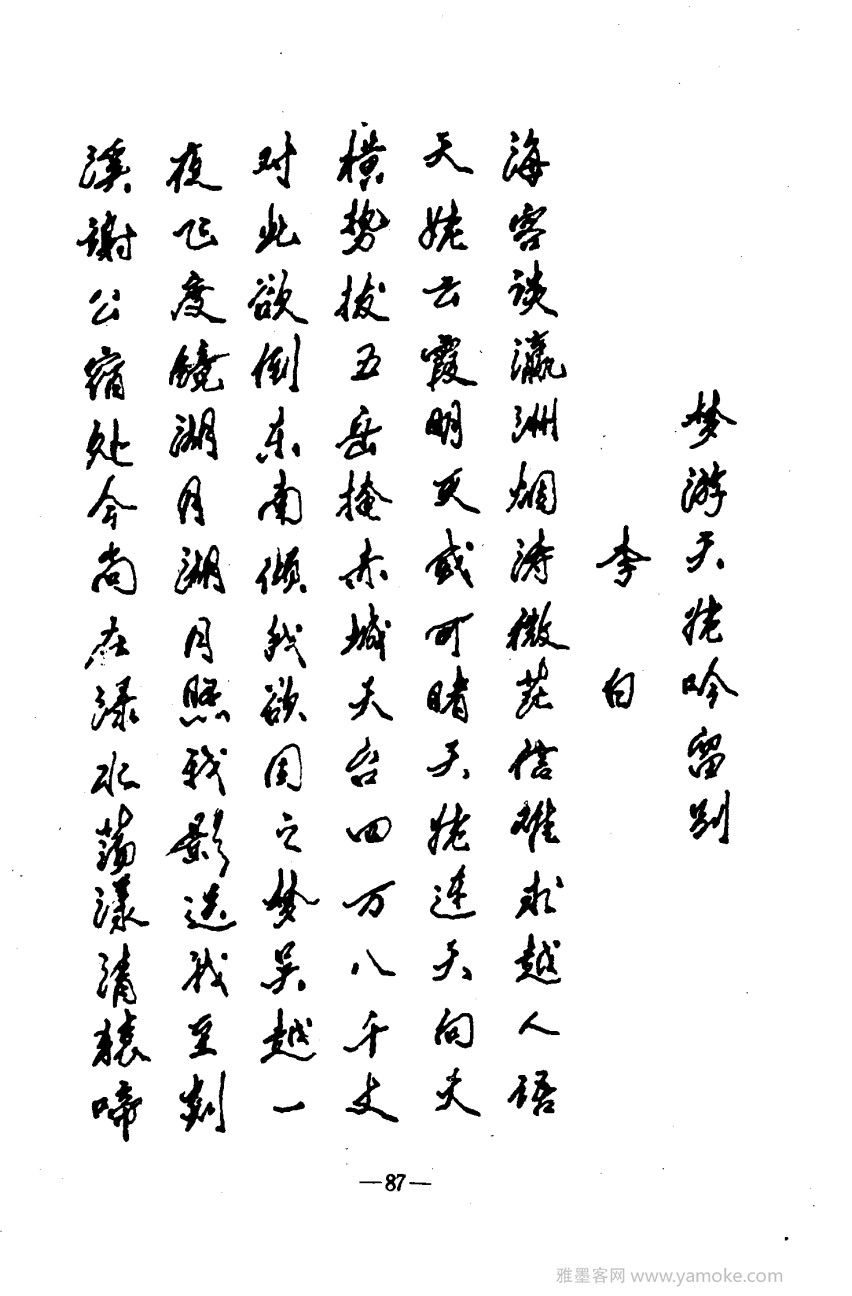 梦游天姥吟留别
李白
海客谈瀛洲烟涛微茫信难求越人语
天姥云霞明灭或可睹天姥连天向天
横势拔五岳掩赤城天台四万八千丈
对此欲倒东南倾我欲因之梦吴越一
夜飞度镜湖月湖月照我影送我至剡
溪谢公宿处今尚在渌水荡漾清猿啼
—87—
雅墨客网 www.yamoke.com